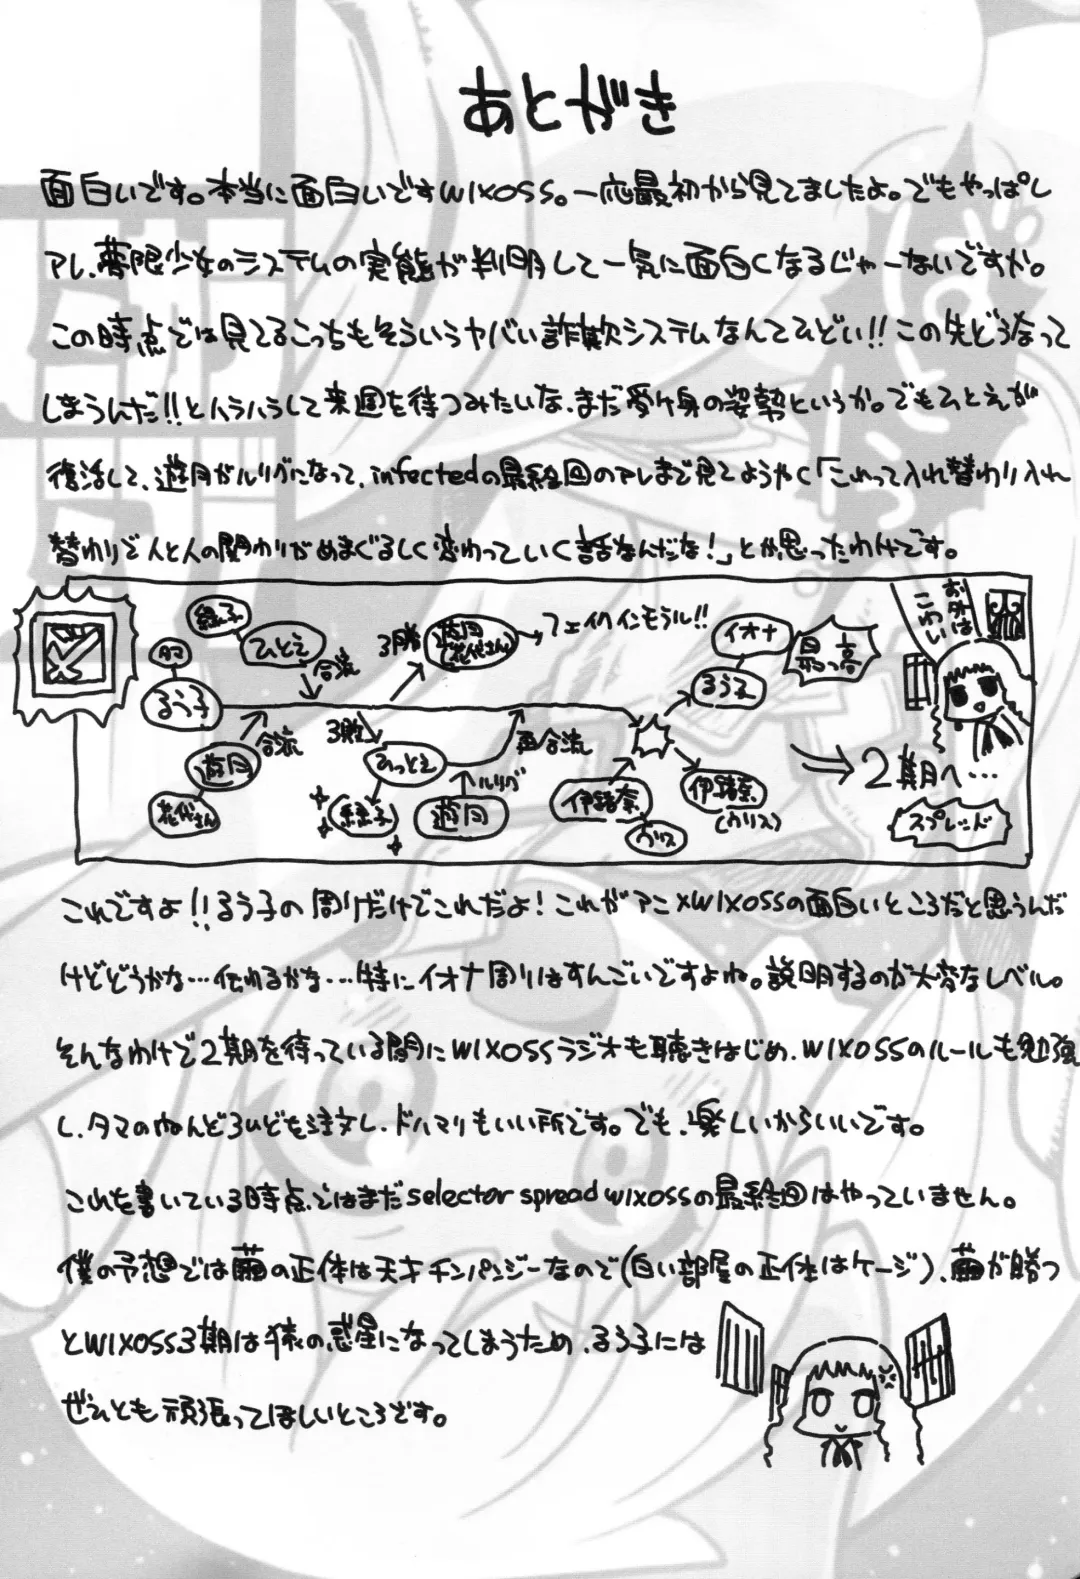 あとがき
面白いです。本当に面白いですWIXOSS。一応最初から見てましたよ。でもやっぱし
アレ、夢限少女のシステムの実態が判明して一気に面白くなるじゃーないですか。
この時点では見てるこっちもそういうヤバい詐欺システムなんてひどい!!この先どうなって
しまうんだ!!とハラハラして来週を待つみたいな、まだ受け身の姿勢というか。でもひとえが
復活して、遊月がルリグになって、infectedの最終回のアレまで見てようやく「これって入れ替わり入れ
替わりで人と人の関わりがめまぐるしく変わっていく話なんだな!」とか思ったわけです。
緑子
ひとえ
合流
タマ
るう子
遊月
花代さん
合流
3勝
遊月
(花代さん)
フェイクインモラル!!
3敗
ひっとえ
緑子
ルリグ
遊月
再合流
伊緒奈
ウリス
イオナ
るうえ
最っ高
伊緒奈
(ウリス)
2期へ…
スプレッド
お外は
こわい
これですよ!!るう子の周りだけでこれだよ!これがアニメWIXOSSの面白いところだと思うんだ
けどどうかな…伝わるかな…特にイオナ周りはすんごいですよね。説明するのが大変なレベル。
そんなわけで2期を待っている間にWIXOSSラジオも聴きはじめ、WIXOSSのルールも勉強
し、タマのねんどろいどを注文し、ドハマリもいい所です。でも、楽しいからいいです。
これを書いている時点ではまだselector spread wixossの最終回はやっていません。
僕の予想では繭の正体は天才チンパンジーなので(白い部屋の正体はケージ)、繭が勝つ
とWIXOSS3期は猿の惑星になってしまうため、るう子には
ぜひとも頑張ってほしいところです。